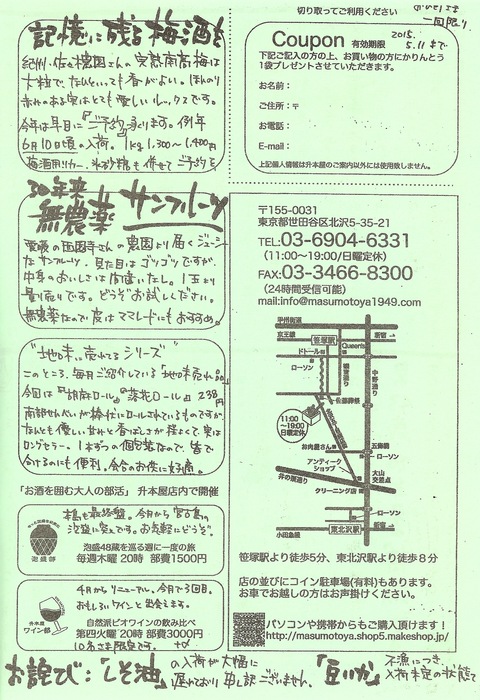 記憶に残る梅酒を
紀州・佐々木農園さんの完熟南高梅は
大粒で、なんといっても香がよい。ほんのり
赤みのある実はとても愛しいルックスです。
今年は早目に『ご予約』承ります。例年
6月10日頃の入荷。1kg 1,300〜1,400円
梅酒用リカー、氷砂糖も併せてご予約を
30年来
無農薬 サンフルーツ
農園より届くジューシー
なサンフルーツ。見た目はゴツゴツですが、
中身のおいしさは間違いなし。1玉より
量り売りです。どうぞお試しください。
無農薬なので皮はママレードにもおすすめ。
“地味に売れてるシリーズ”
このところ、毎月ご紹介している「地味売れ品」
今回は『胡麻ロール』『落花ロール』238円
南部せんべいが棒状にロールされているものですが、
なんとも優しい甘みと香ばしさが程よくて実は
ロングセラー。1本ずつの個包装なので、皆で
分けるのにも便利。会合のお供に好適。
「お酒を囲む大人の部活」 升本屋店内で開催
泡盛部
泡盛48蔵を巡る週に一度の旅
毎週木曜 20時 部費1500円
升本屋
ワイン部
4月からリニューアル。今月で3回目。
おもしろいワインと出会えます。
自然派ビオワインの飲み比べ
第四火曜 20時 部費3000円
10名さま限定です。
切り取ってご利用ください
一回限り
Coupon 有効期限 2015. 5.11まで
下記ご記入の方の上、お買い物の方にかりんとう
1袋プレゼントさせていただきます。
お名前：
ご住所：〒
お電話：
E-mail：
上記個人情報は升本屋のご案内以外には使用致しません。
〒155-0031
東京都世田谷区北沢5-35-21
TEL:03-6904-6331
(11:00〜19:00/日曜定休)
FAX:03-3466-8300
(24時間受信可能)
mail:info@masumotoya1949.com
甲州街道
京王線
笹塚駅
新宿→
ドトール
Queens
ローソン
中野通り
11:00
〜19:00
日曜定休
お肉屋さん
五條橋
ローソン
アンティーク
ショップ
大山
交差点
井の頭通り
クリーニング店
ローソン
小田急線
東北沢駅
新宿→
笹塚駅より徒歩5分、東北沢駅より徒歩8分
店の並びにコイン駐車場(有料)もあります。
お車でお越しの方はお声掛けください。
パソコンや携帯からもご購入頂けます！
http://masumotoya.shop5.makeshop.jp/
お詫び：「しそ油」の入荷が大幅に
遅れており申し訳ございません。
「豆いか」不漁につき、
入荷未定の状態です